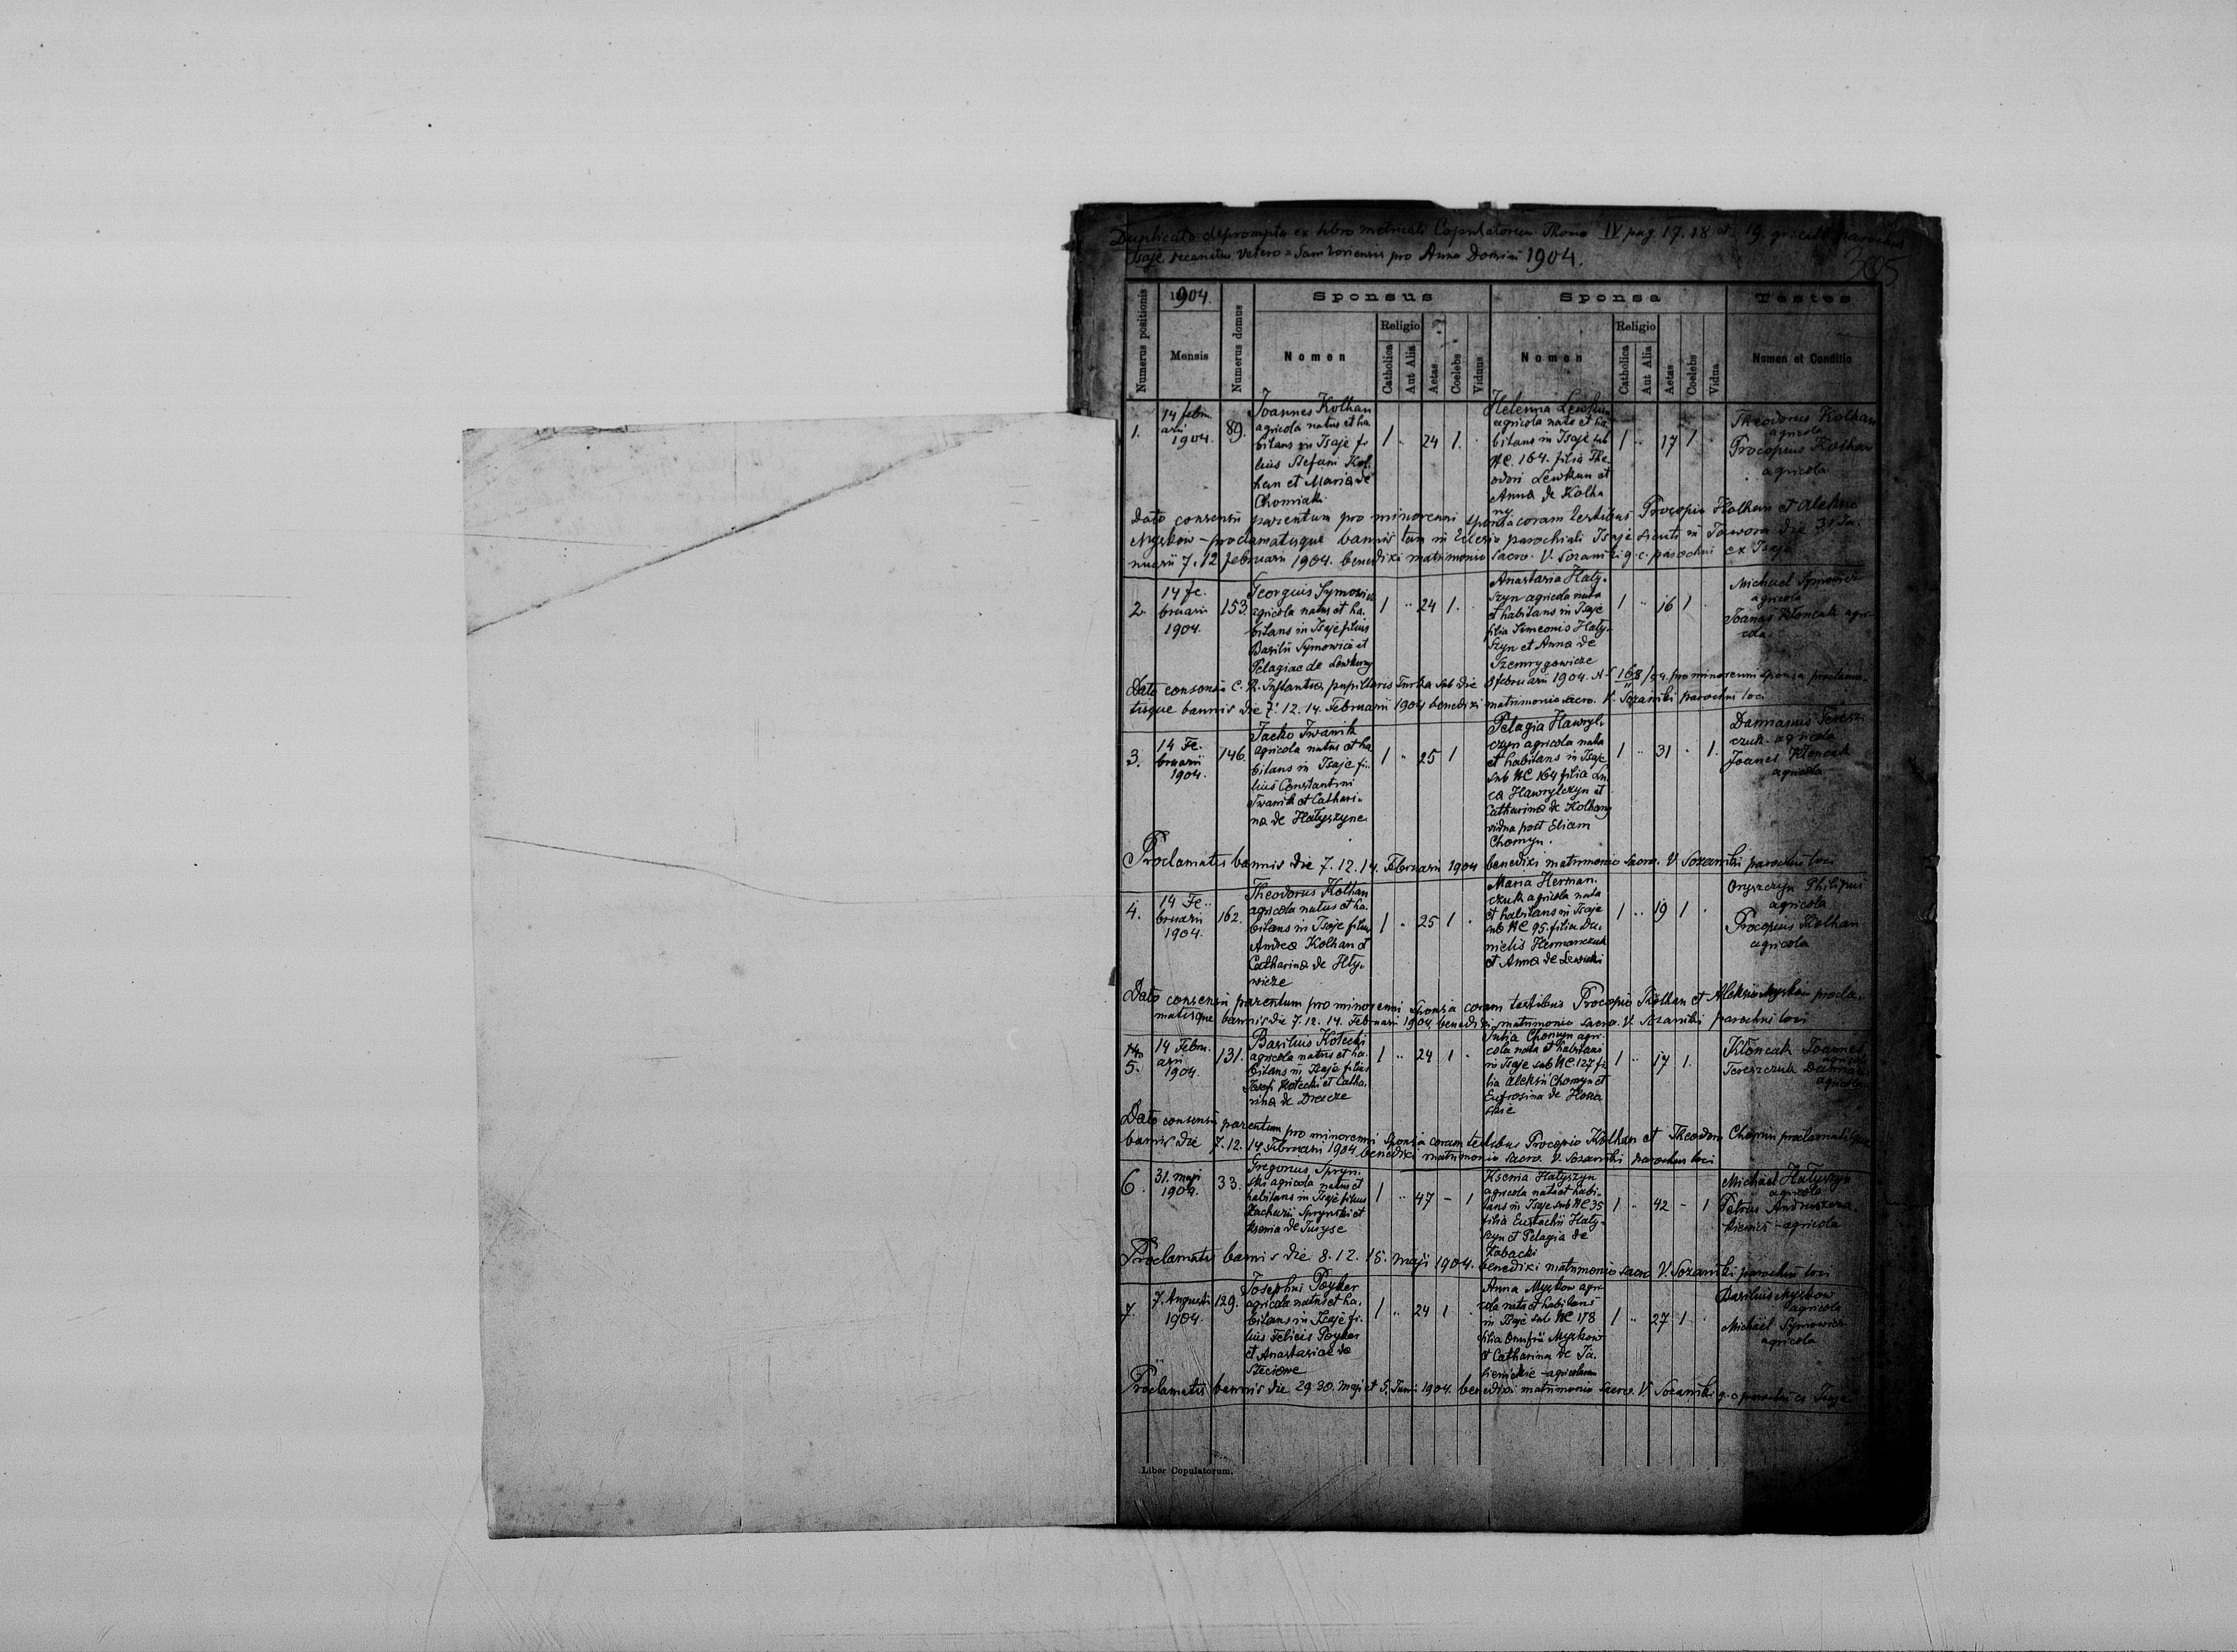 Duplicata deprompta ex libro metricali Copulatorum Thomo IV pag. 17. 18 et 19. gr: cath parochus
Isaje decanatus Vetero = Samboriensis pro Anno Domini 1904.
305
Numerus positionis
1904.
Mensis
Numerus domus
Sponsus
Nomen
Religio
Catholica
Aut Alia
Aetas
Coelebs
Viduus
Sponsa
Nomen
Religio
Catholica
Aut Alia
Aetas
Coelebs
Vidua
Testes
Nomen et Conditio
1.
14 febru
arii
1904.
89.
Joannes Kolhan
agricola natus et ha
bitans in Isaje fi
lius Stefani Kol
han et Maria de
Chomiaki
1 .. 24 1 .
Helenna Lewkun
agricola nata et ha
bitans in Isaje sub
NC. 164. filia The
odori Lewkun et
Anna de Kolha
ny
1 .. 17 1 .
Theodorus Kolhan
agricola
Procopius Kolhan
agricola
Dato consensu parentum pro minorenni sponsa coram testibus Procopio Kolhan et Aleksio
Myzkow - proclamatisque bannis tum in Eclesia parochiali Isaje sicuti in Jawora die 31 Ja.
nuarii 7. 12 februarii 1904. benedixi matrimonio sacro. V. Sozański g. c. parochus ex Isaje
2.
14 fe.
bruarii
1904.
153
Georgius Symowicz
agricola natus et ha.
bitans in Isaje filius
Basilii Symowicz et
Pelagiae de Lewkuny
1 .. 24 1 .
Anastasia Haty.
szyn agricola nata
et habitans in Isaje
filia Simeonis Haty.
szyn et Anna de
Szemrygowicze
1 .. 16 1 .
Michael Symowicz
agricola
Joanes Kłoncak agri
cola
Dato consensu C. R. Instantia pupillaris Turka sub die 8 februarii 1904. pro minorenni sponsa proclama
tisque bannis die 7. 12. 14. Februarii 1904 benedixi matrimonio sacro. V. Sozański parochus loci
3.
14 Fe.
bruarii
1904.
146.
Jacko Iwanik
agricola natus et ha
bitans in Isaje fi.
lius Constantini
Iwanik et Cathari.
na de Hatyszyne
1 .. 25 1
Pelagia Hawryl.
czyn agricola nata
et habitans in Isaje
sub NC 164 filia Lu
ca Hawrylczyn et
Catharina de Kolhany
vidua post Eliam
Chomyn.
1 .. 31 . 1.
Damianus Teresz
czuk agricola
Joanes Kłoncak
agricola
Proclamatis bannis die 7. 12. 14. Februarii 1904 benedixi matrimonio sacro. V. Sozański parochus loci
4.
14 Fe..
bruarii
1904.
162.
Theodorus Kolhan
agricola natus et ha.
bitans in Isaje filius
Andrea Kolhan et
Catharina de Hty.
wicze
1 .. 25 1 .
Maria Herman.
czuk agricola nata
et habitans in Isaje
sub NC 95. filia Da.
nielis Hermanczuk
et Anna de Lewicki
1 .. 19 1 .
Oryszczyn Philipus
agricola
Procopius Kolhan
agricola
Dato consensu parentum pro minorenni sponsa coram testibus Procopio Kolhan et Aleksio Myzkow procla.
matisque bannis die 7. 12. 14. Februarii 1904 benedixi matrimonio sacro. V. Sozański parochus loci
5.
14 Febru.
arii
1904.
131.
Basilius Kotecki
agricola natus et ha.
bitans in Isaje filius
Josefi Kotecki et Catha.
rina de
1 .. 24 1 .
Julia Chomyn agri.
cola nata et habitans
in Isaje sub NC. 127 fi
lia Aleksii Chomyn et
Eufrosina de
1 .. 17 1.
Kłoncak Joannes
agricola
Tereszczuk Damian
agricola
Dato consensu parentum pro minorenni sponsa coram testibus Procopio Kolhan et Theodoro Chomyn proclamatisque
bannis die 7. 12. 14 Februarii 1904 benedixi matrimonio sacro. V. Sozański parochus loci
6.
31. maji
1904.
33.
Gregorius Spryn.
ski agricola natus et
habitans in Isaje filius
Zacharii Sprynski et
Ksenia de Jusyse
1 .. 47 - 1
Ksenia Hatyszyn
agricola nata et habi.
tans in Isaje sub NC 35
filia Eustachii Haty.
szyn et Pelagia de
Zabacki
1 .. 42 - 1
Michael Hatyszyn
agricola
Petrus
- agricola
Proclamatis bannis die 8. 12. 15. Maji 1904. benedixi matrimonio sacro V. Sozański parochus loci
7.
7. Augusti
1904.
129.
Josephus Poyker
agricola natus et ha.
bitans in Isaje fi.
lius Felicis Poyker
et Anastasiae de
Steciowe
1 .. 24 1 .
Anna Myzkow agri
cola nata et habitans
in Isaje sub NC 178
filia Onufrii Myzkow
et Catharina de Ja.
- agricolarum
1 .. 27 1 .
Basilius Myzkow
agricola
Michael Symowicz
agricola
Proclamatis bannis die 29. 30. Maji et 5. Junii 1904. benedixi matrimonio sacro. V. Sozański g. c parochus ex Isaje
Liber Copulatorum.